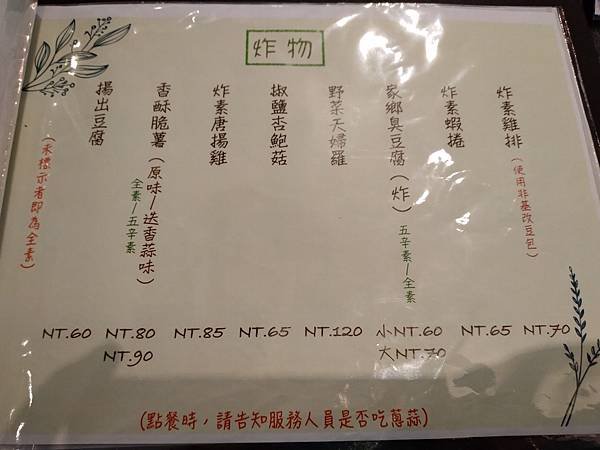 炸物
炸素雞排（使用非基改豆包）
炸素蝦捲
家鄉臭豆腐（炸）
五辛素/全素
野菜天婦羅
椒鹽杏鮑菇
炸素唐揚雞
香酥脆薯（原味/迷香蒜味）
全素/五辛素
揚出豆腐
（未標示者即為全素）
NT.60 NT.80 NT.85 NT.65 NT.120 小NT.60 NT.65 NT.70
NT.90 大NT.70
(點餐時，請告知服務人員是否吃蔥蒜)